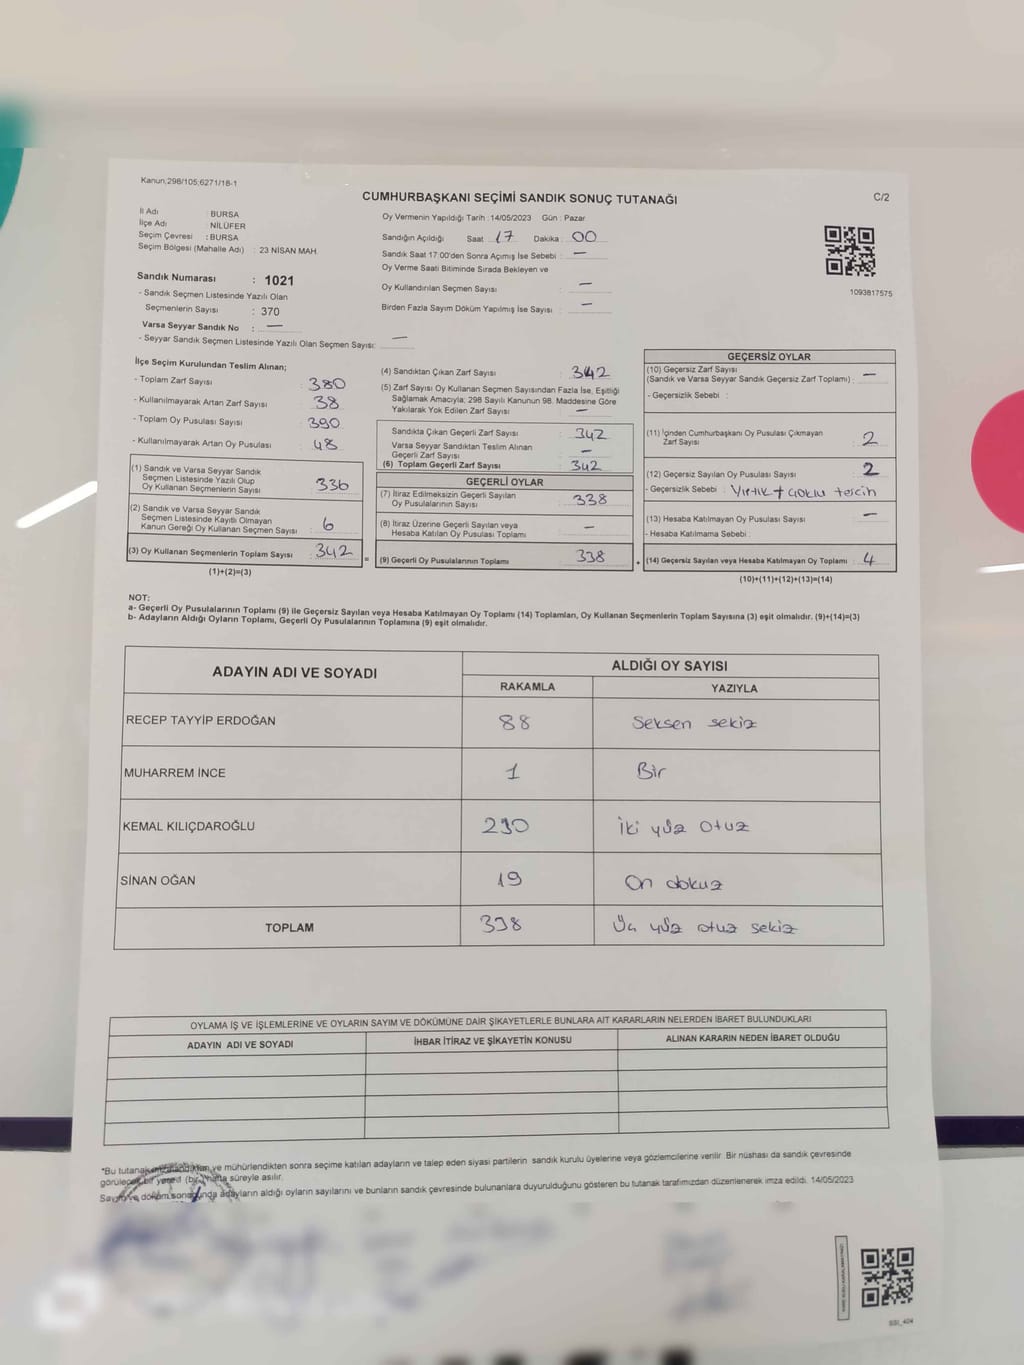 Kanun;298/105;6271/18-1
CUMHURBAŞKANI SEÇİMİ SANDIK SONUÇ TUTANAĞI
C/2
İl Adı : BURSA
İlçe Adı : NİLÜFER
Seçim Çevresi : BURSA
Seçim Bölgesi (Mahalle Adı) : 23 NİSAN MAH.
Sandık Numarası : 1021
- Sandık Seçmen Listesinde Yazılı Olan
Seçmenlerin Sayısı : 370
Varsa Seyyar Sandık No : —
- Seyyar Sandık Seçmen Listesinde Yazılı Olan Seçmen Sayısı: —
Oy Vermenin Yapıldığı Tarih : 14/05/2023 Gün : Pazar
Sandığın Açıldığı Saat 17 Dakika : 00
Sandık Saat 17:00'den Sonra Açımış İse Sebebi : —
Oy Verme Saati Bitiminde Sırada Bekleyen ve
Oy Kullandırılan Seçmen Sayısı : —
Birden Fazla Sayım Döküm Yapılmış İse Sayısı : —
1093817575
İlçe Seçim Kurulundan Teslim Alınan;
- Toplam Zarf Sayısı : 380
- Kullanılmayarak Artan Zarf Sayısı : 38
- Toplam Oy Pusulası Sayısı : 390
- Kullanılmayarak Artan Oy Pusulası : 48
(1) Sandık ve Varsa Seyyar Sandık
Seçmen Listesinde Yazılı Olup
Oy Kullanan Seçmenlerin Sayısı : 336
(2) Sandık ve Varsa Seyyar Sandık
Seçmen Listesinde Kayıtlı Olmayan
Kanun Gereği Oy Kullanan Seçmen Sayısı : 6
(3) Oy Kullanan Seçmenlerin Toplam Sayısı : 342
(1)+(2)=(3)
(4) Sandıktan Çıkan Zarf Sayısı : 342
(5) Zarf Sayısı Oy Kullanan Seçmen Sayısından Fazla İse, Eşitliği
Sağlamak Amacıyla; 298 Sayılı Kanunun 98. Maddesine Göre
Yakılarak Yok Edilen Zarf Sayısı : —
Sandıkta Çıkan Geçerli Zarf Sayısı : 342
Varsa Seyyar Sandıktan Teslim Alınan
Geçerli Zarf Sayısı : —
(6) Toplam Geçerli Zarf Sayısı : 342
GEÇERLİ OYLAR
(7) İtiraz Edilmeksizin Geçerli Sayılan
Oy Pusulalarının Sayısı : 338
(8) İtiraz Üzerine Geçerli Sayılan veya
Hesaba Katılan Oy Pusulası Toplamı : —
= (9) Geçerli Oy Pusulalarının Toplamı : 338
GEÇERSİZ OYLAR
(10) Geçersiz Zarf Sayısı
(Sandık ve Varsa Seyyar Sandık Geçersiz Zarf Toplamı) : —
- Geçersizlik Sebebi :
(11) İçinden Cumhurbaşkanı Oy Pusulası Çıkmayan
Zarf Sayısı : 2
(12) Geçersiz Sayılan Oy Pusulası Sayısı : 2
- Geçersizlik Sebebi : Yırtık + çoklu tercih
(13) Hesaba Katılmayan Oy Pusulası Sayısı : —
- Hesaba Katılmama Sebebi :
+ (14) Geçersiz Sayılan veya Hesaba Katılmayan Oy Toplamı : 4
(10)+(11)+(12)+(13)=(14)
NOT:
a- Geçerli Oy Pusulalarının Toplamı (9) ile Geçersiz Sayılan veya Hesaba Katılmayan Oy Toplamı (14) Toplamları, Oy Kullanan Seçmenlerin Toplam Sayısına (3) eşit olmalıdır. (9)+(14)=(3)
b- Adayların Aldığı Oyların Toplamı, Geçerli Oy Pusulalarının Toplamına (9) eşit olmalıdır.
ADAYIN ADI VE SOYADI
ALDIĞI OY SAYISI
RAKAMLA YAZIYLA
RECEP TAYYİP ERDOĞAN 88 Seksen sekiz
MUHARREM İNCE 1 Bir
KEMAL KILIÇDAROĞLU 230 İki yüz otuz
SİNAN OĞAN 19 On dokuz
TOPLAM 338 Üç yüz otuz sekiz
OYLAMA İŞ VE İŞLEMLERİNE VE OYLARIN SAYIM VE DÖKÜMÜNE DAİR ŞİKAYETLERLE BUNLARA AİT KARARLARIN NELERDEN İBARET BULUNDUKLARI
ADAYIN ADI VE SOYADI İHBAR İTİRAZ VE ŞİKAYETİN KONUSU ALINAN KARARIN NEDEN İBARET OLDUĞU
*Bu tutanak ve mühürlendikten sonra seçime katılan adayların ve talep eden siyasi partilerin sandık kurulu üyelerine veya gözlemcilerine verilir. Bir nüshası da sandık çevresinde
görülecek bir yere (bir) hafta süreyle asılır.
Sayım ve döküm sonucunda adayların aldığı oyların sayılarını ve bunların sandık çevresinde bulunanlara duyurulduğunu gösteren bu tutanak tarafımızdan düzenlenerek imza edildi. 14/05/2023